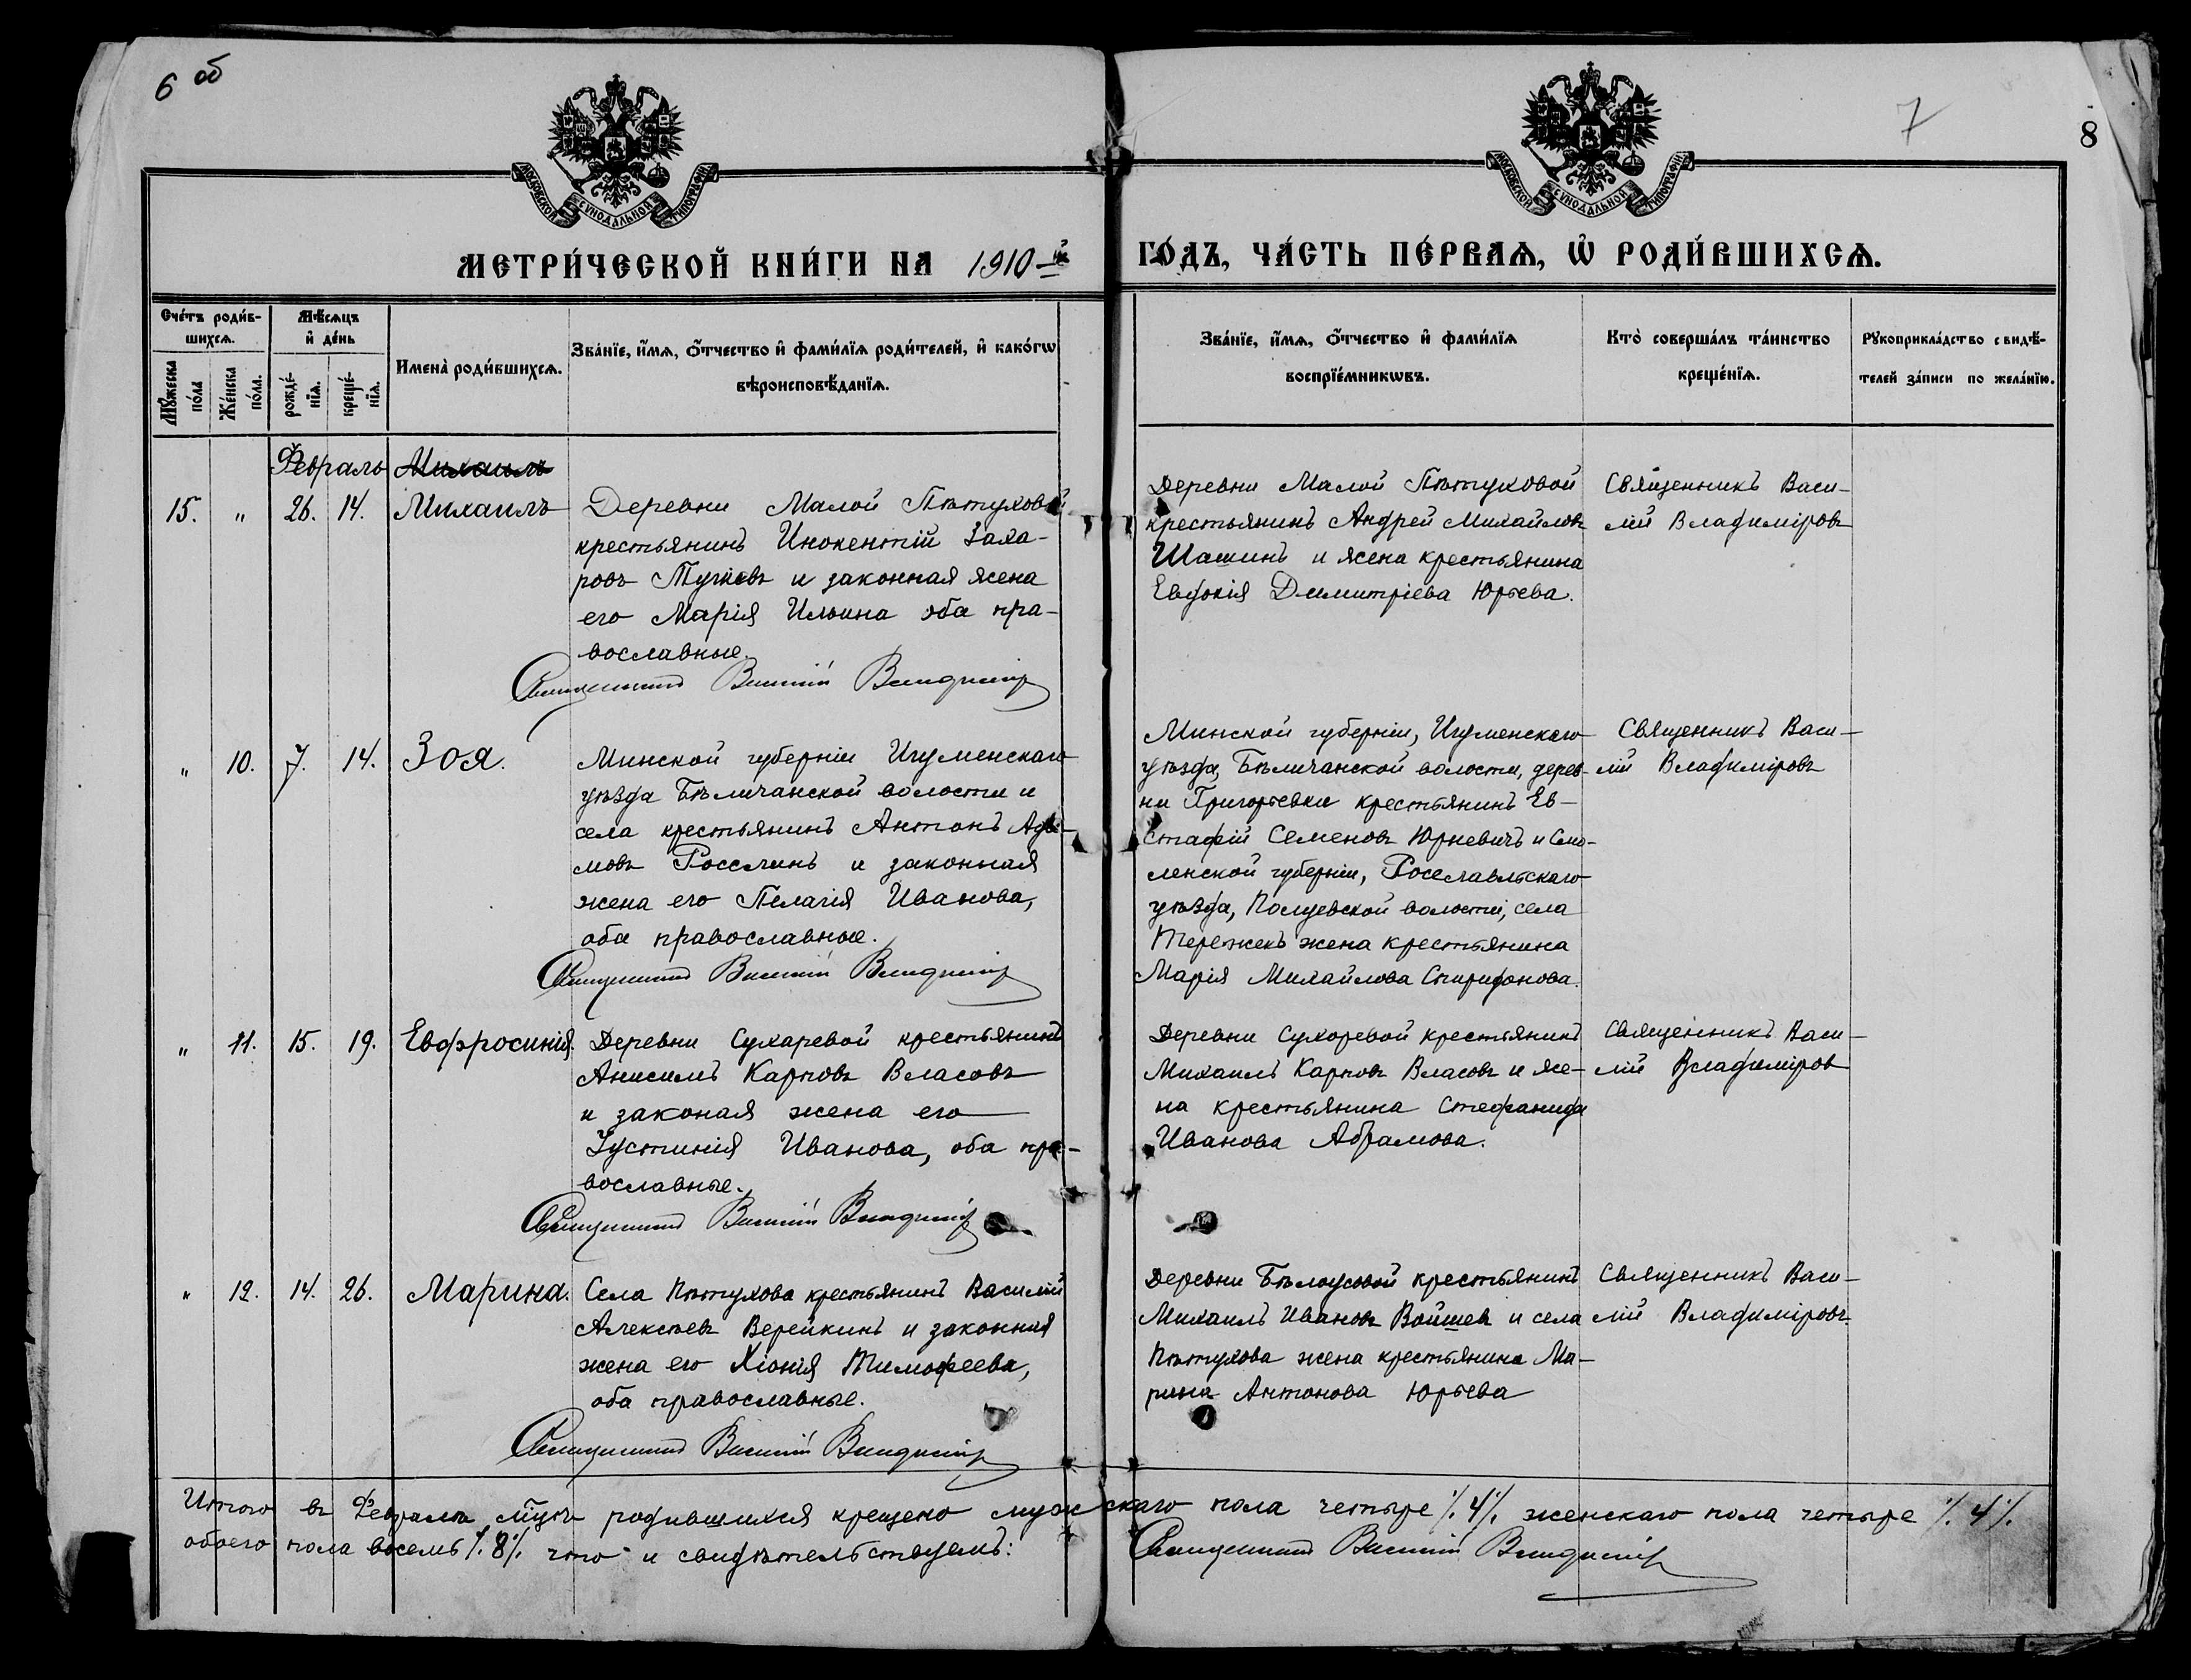 6 об
7
8
МОСКОВСКОЙ СѴНОДАЛЬНОЙ ТИПОГРАФІИ
МОСКОВСКОЙ СѴНОДАЛЬНОЙ ТИПОГРАФІИ
МЕТРИ́ЧЕСКОЙ КНИ́ГИ НА 1910-й ГО́ДЪ, ЧА́СТЬ ПЕ́РВАѦ, Ѡ҆ РОДИ́ВШИХСѦ.
Сче́тъ роди́в-
шихсѧ.
Мꙋ́жеска
по́ла
Же́нска
по́ла.
Мѣ́сѧцъ
и҆ де́нь
рожде́-
нїѧ.
креще́-
нїѧ.
Имена̀ роди́вшихсѧ.
Зва́нїе, и҆́мѧ, ѻ҆́тчество и҆ фами́лїѧ роди́телей, и҆ како́гѡ
вѣроисповѣ́данїѧ.
Зва́нїе, и҆́мѧ, ѻ҆́тчество и҆ фами́лїѧ
воспрїе́мникѡвъ.
Кто̀ соверша́лъ та́инство
креще́нїѧ.
Рꙋкоприкла́дство свидѣ́-
телей за́писи по жела́нїю.
Февраль Михаилъ
15. " 26. 14. Михаилъ
Деревни Малой Пѣтуховой
крестьянинъ Инокентій Заха-
ровъ и законная жена
его Марія Ильина оба пра-
вославные.
Священникъ Василій Владиміровъ
Деревни Малой Пѣтуховой
крестьянинъ Андрей Михайловъ
Шашинъ и жена крестьянина
Евдокія Димитріева Юрьева.
Священникъ Васи-
лій Владиміровъ
" 10. 7. 14. Зоя.
Минской губерніи Игуменскаго
уѣзда Бѣличанской волости и
села крестьянинъ Антонъ Ада-
мовъ и законная
жена его Пелагія Иванова,
оба православные.
Священникъ Василій Владиміровъ
Минской губерніи, Игуменскаго
уѣзда, Бѣличанской волости, дерев-
ни Григорьевки крестьянинъ Ев-
стафій Семеновъ Юркевичъ и Смо-
ленской губерніи, Рославльскаго
уѣзда, волости, села
жена крестьянина
Марія Михайлова Спиридонова.
Священникъ Васи-
лій Владиміровъ
" 11. 15. 19. Евфросинія.
Деревни Сухаревой крестьянинъ
Анисимъ Карповъ Власовъ
и законая жена его
Іустинія Иванова, оба пра-
вославные.
Священникъ Василій Владиміровъ
Деревни Сухоревой крестьянинъ
Михаилъ Карповъ Власовъ и же-
на крестьянина Стефанида
Иванова Абрамова.
Священникъ Васи-
лій Владиміров
" 12. 14. 26. Марина.
Села Пѣтухова крестьянинъ Василій
Алексѣевъ Верейкинъ и законная
жена его Хіонія Тимофеева,
оба православные.
Священникъ Василій Владиміровъ
Деревни Бѣлоусовой крестьянинъ
Михаилъ Ивановъ и села
Пѣтухова жена крестьянина Ма-
рина Антонова Юрьева
Священникъ Васи-
лій Владиміровъ
Итого въ Февралѣ м-цѣ родившихся крещено мужскаго пола четыре ./.4./. женскаго пола четыре ./.4./.
обоего пола восемь ./.8./. что и свидѣтельствуемъ: Священникъ Василій Владиміровъ